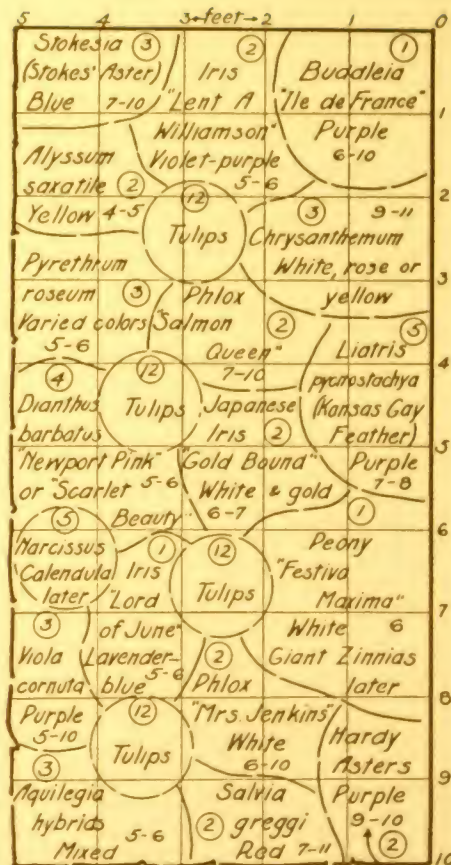 5 4 3 ←feet→ 2 1 0
Stokesia ③
(Stokes' Aster)
Blue 7-10
②
Iris
"Lent A
Williamson"
Violet-purple
5-6
①
Buddleia
"Ile de France"
Purple
6-10
1
Alyssum
saxatile ②
Yellow 4-5
2
⑫
Tulips
③ 9-11
Chrysanthemum
White, rose or
yellow
3
Pyrethrum
roseum ③
Varied colors
5-6
Phlox
"Salmon
Queen" ②
7-10
4
⑤
Liatris
pycnostachya
(Kansas Gay
Feather)
Purple
7-8
④
Dianthus
barbatus
"Newport Pink"
or "Scarlet 5-6
Beauty
⑫
Tulips
Japanese
Iris ②
"Gold Bound"
White & gold
6-7
5
6
⑤
Narcissus
Calendula
later
①
Iris
"Lord
of June"
Lavender-
blue 5-6
⑫
Tulips
①
Peony
"Festiva
Maxima"
White 6
Giant Zinnias
later
7
③
Viola
cornuta
Purple
5-10
8
⑫
Tulips
②
Phlox
"Mrs. Jenkins"
White
6-10
Hardy
Asters
Purple
9-10
②
9
③
Aquilegia
hybrids
Mixed 5-6
Salvia
② greggi
Red 7-11
10